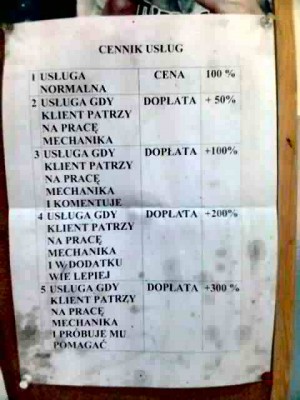 CENNIK USŁUG
1 USŁUGA NORMALNA CENA 100 %
2 USŁUGA GDY KLIENT PATRZY NA PRACĘ MECHANIKA DOPŁATA + 50%
3 USŁUGA GDY KLIENT PATRZY NA PRACĘ MECHANIKA I KOMENTUJE DOPŁATA +100%
4 USŁUGA GDY KLIENT PATRZY NA PRACĘ MECHANIKA I W DODATKU WIE LEPIEJ DOPŁATA +200%
5 USŁUGA GDY KLIENT PATRZY NA PRACĘ MECHANIKA I PRÓBUJE MU POMAGAĆ DOPŁATA +300 %